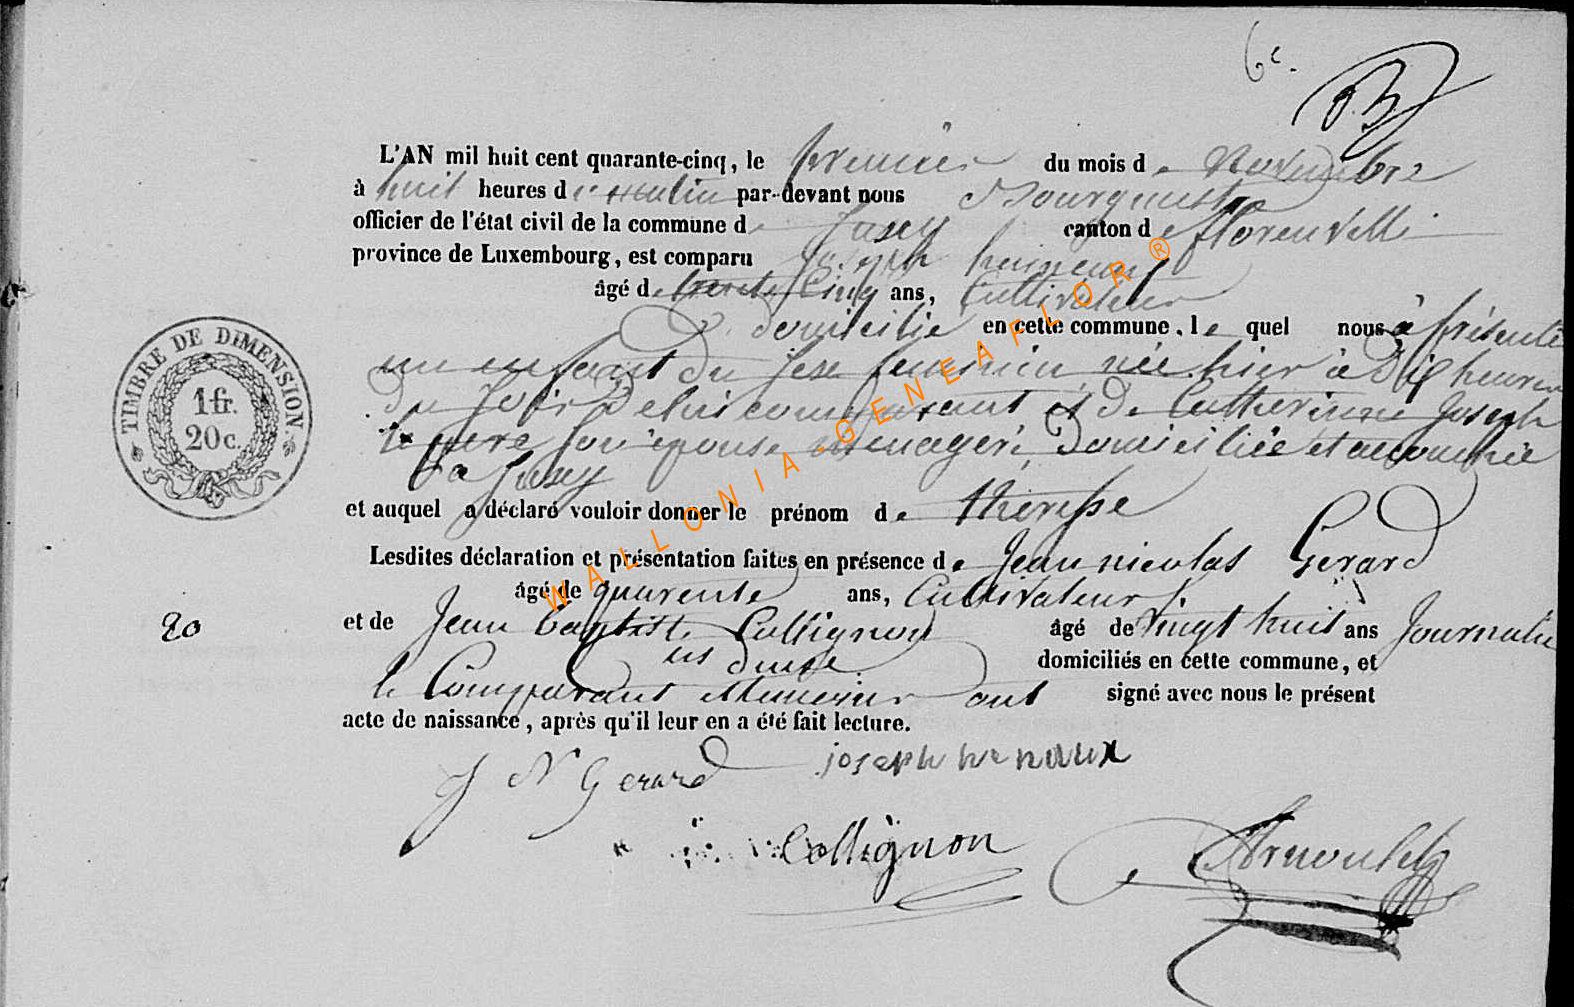 6e.
L'AN mil huit cent quarante-cinq, le premier du mois de Novembre
à huit heures du matin par-devant nous Bourgmestre
officier de l'état civil de la commune de Jusey canton de florenville
province de Luxembourg, est comparu Joseph
âgé de trente Cinq ans, Cultivateur
domicilié en cette commune, lequel nous a présenté
un enfant du sexe feminin née hier à dix heures
du soir De lui comparant et de Catherinne Joseph
son épouse menagere Domiciliée et accouchée
a Jusey
et auquel a déclaré vouloir donner le prénom de therésse
Lesdites déclaration et présentation faites en présence de Jean nicolas Gerard
âgé de quarente ans, Cultivateur
et de Jean Baptiste Collignon âgé de vingt huit ans Journalie
domiciliés en cette commune, et
le Comparant et temoins ont signé avec nous le présent
acte de naissance, après qu'il leur en a été fait lecture.
J N Gerard
joseph henaux
Collignon
TIMBRE DE DIMENSION.
1 fr.
20 c.
20
WALLONIA-GENEAFLOR®